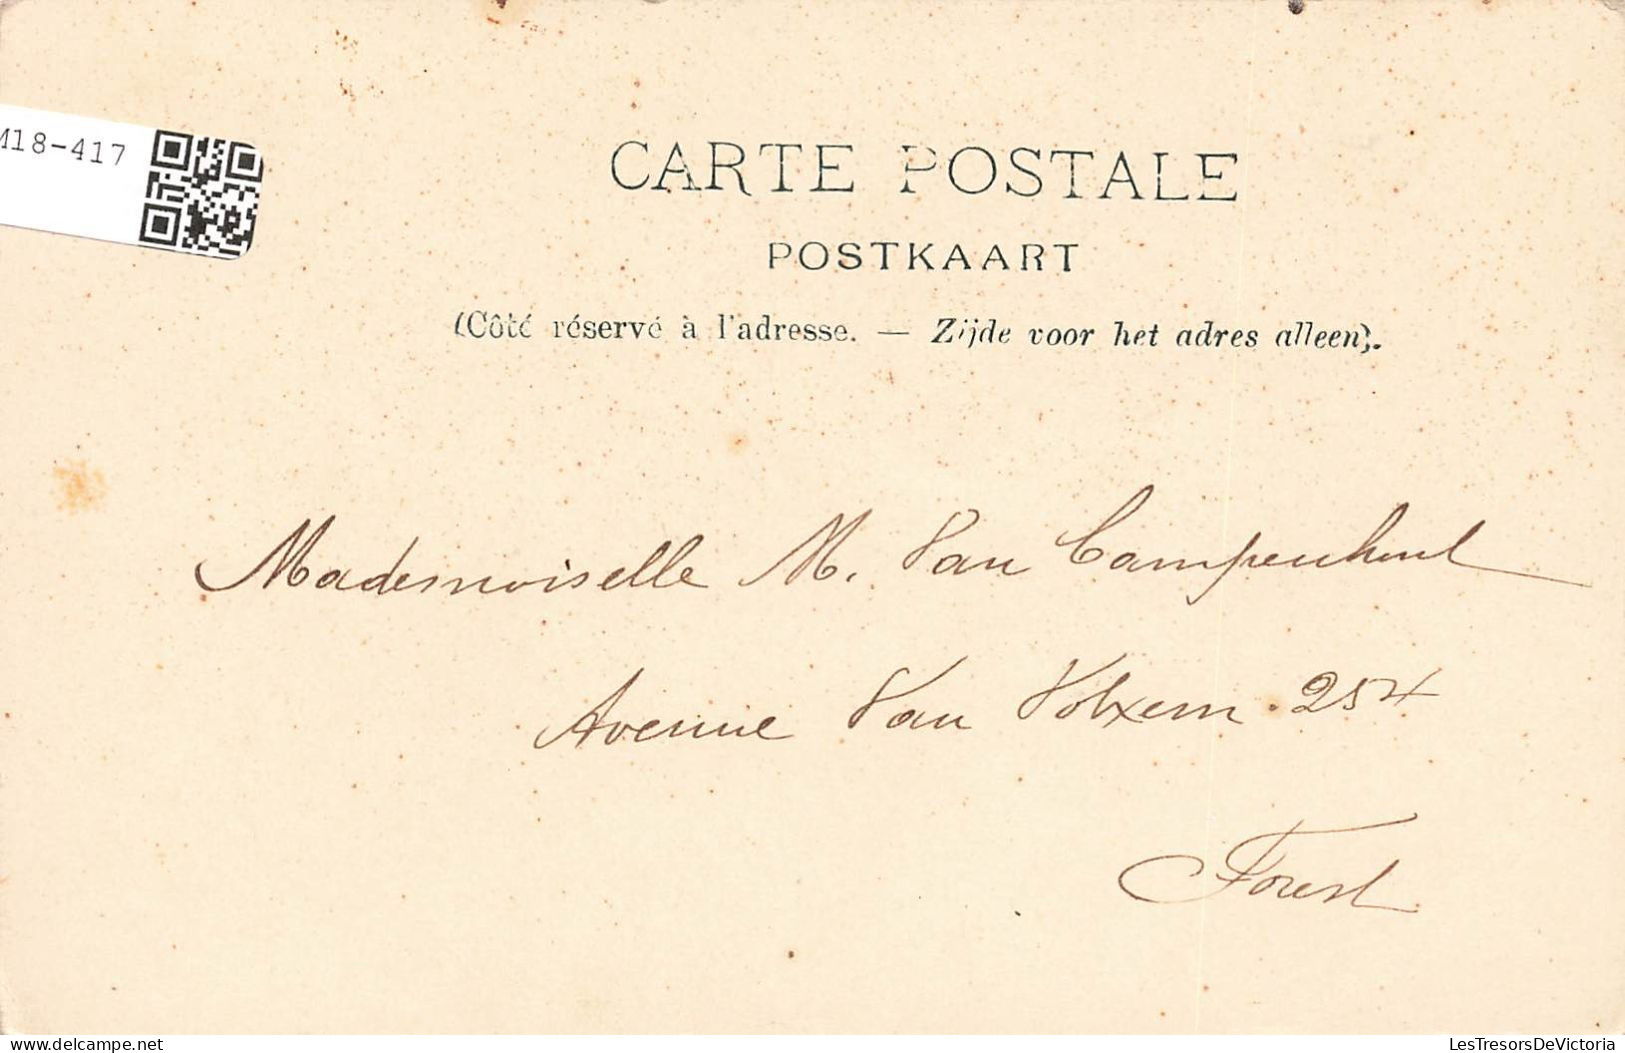 M18-417
CARTE POSTALE
POSTKAART
(Côté réservé à l'adresse. — Zijde voor het adres alleen).
Mademoiselle M. Van Campenhout
Avenue Van Volxem. 254
Forest
delcampe.net
LesTresorsDeVictoria